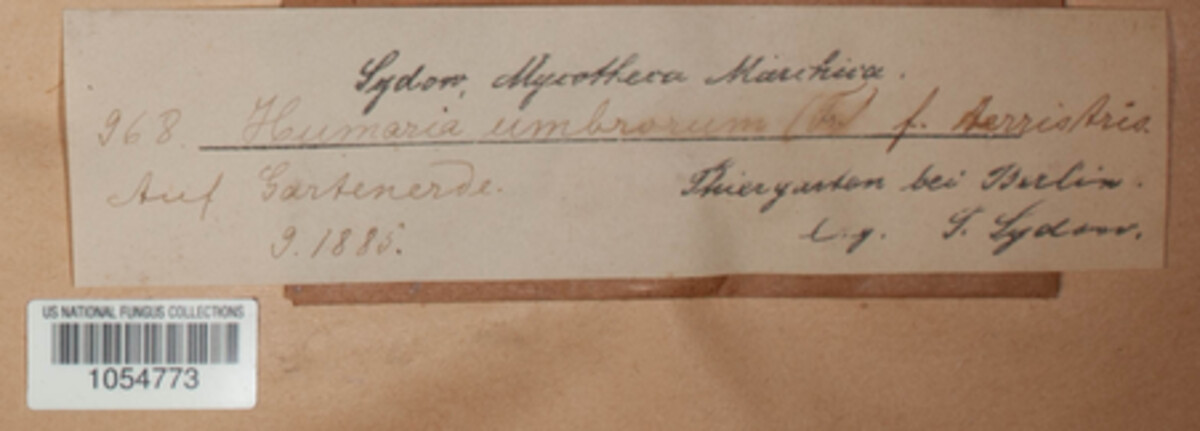 Sydow, Mycotheca Marchica.
968. Humaria umbrorum (Fr.) f. terristris.
Auf Gartenerde. Thiergarten bei Berlin.
9. 1885. Leg. Sydow.
US NATIONAL FUNGUS COLLECTIONS
1054773